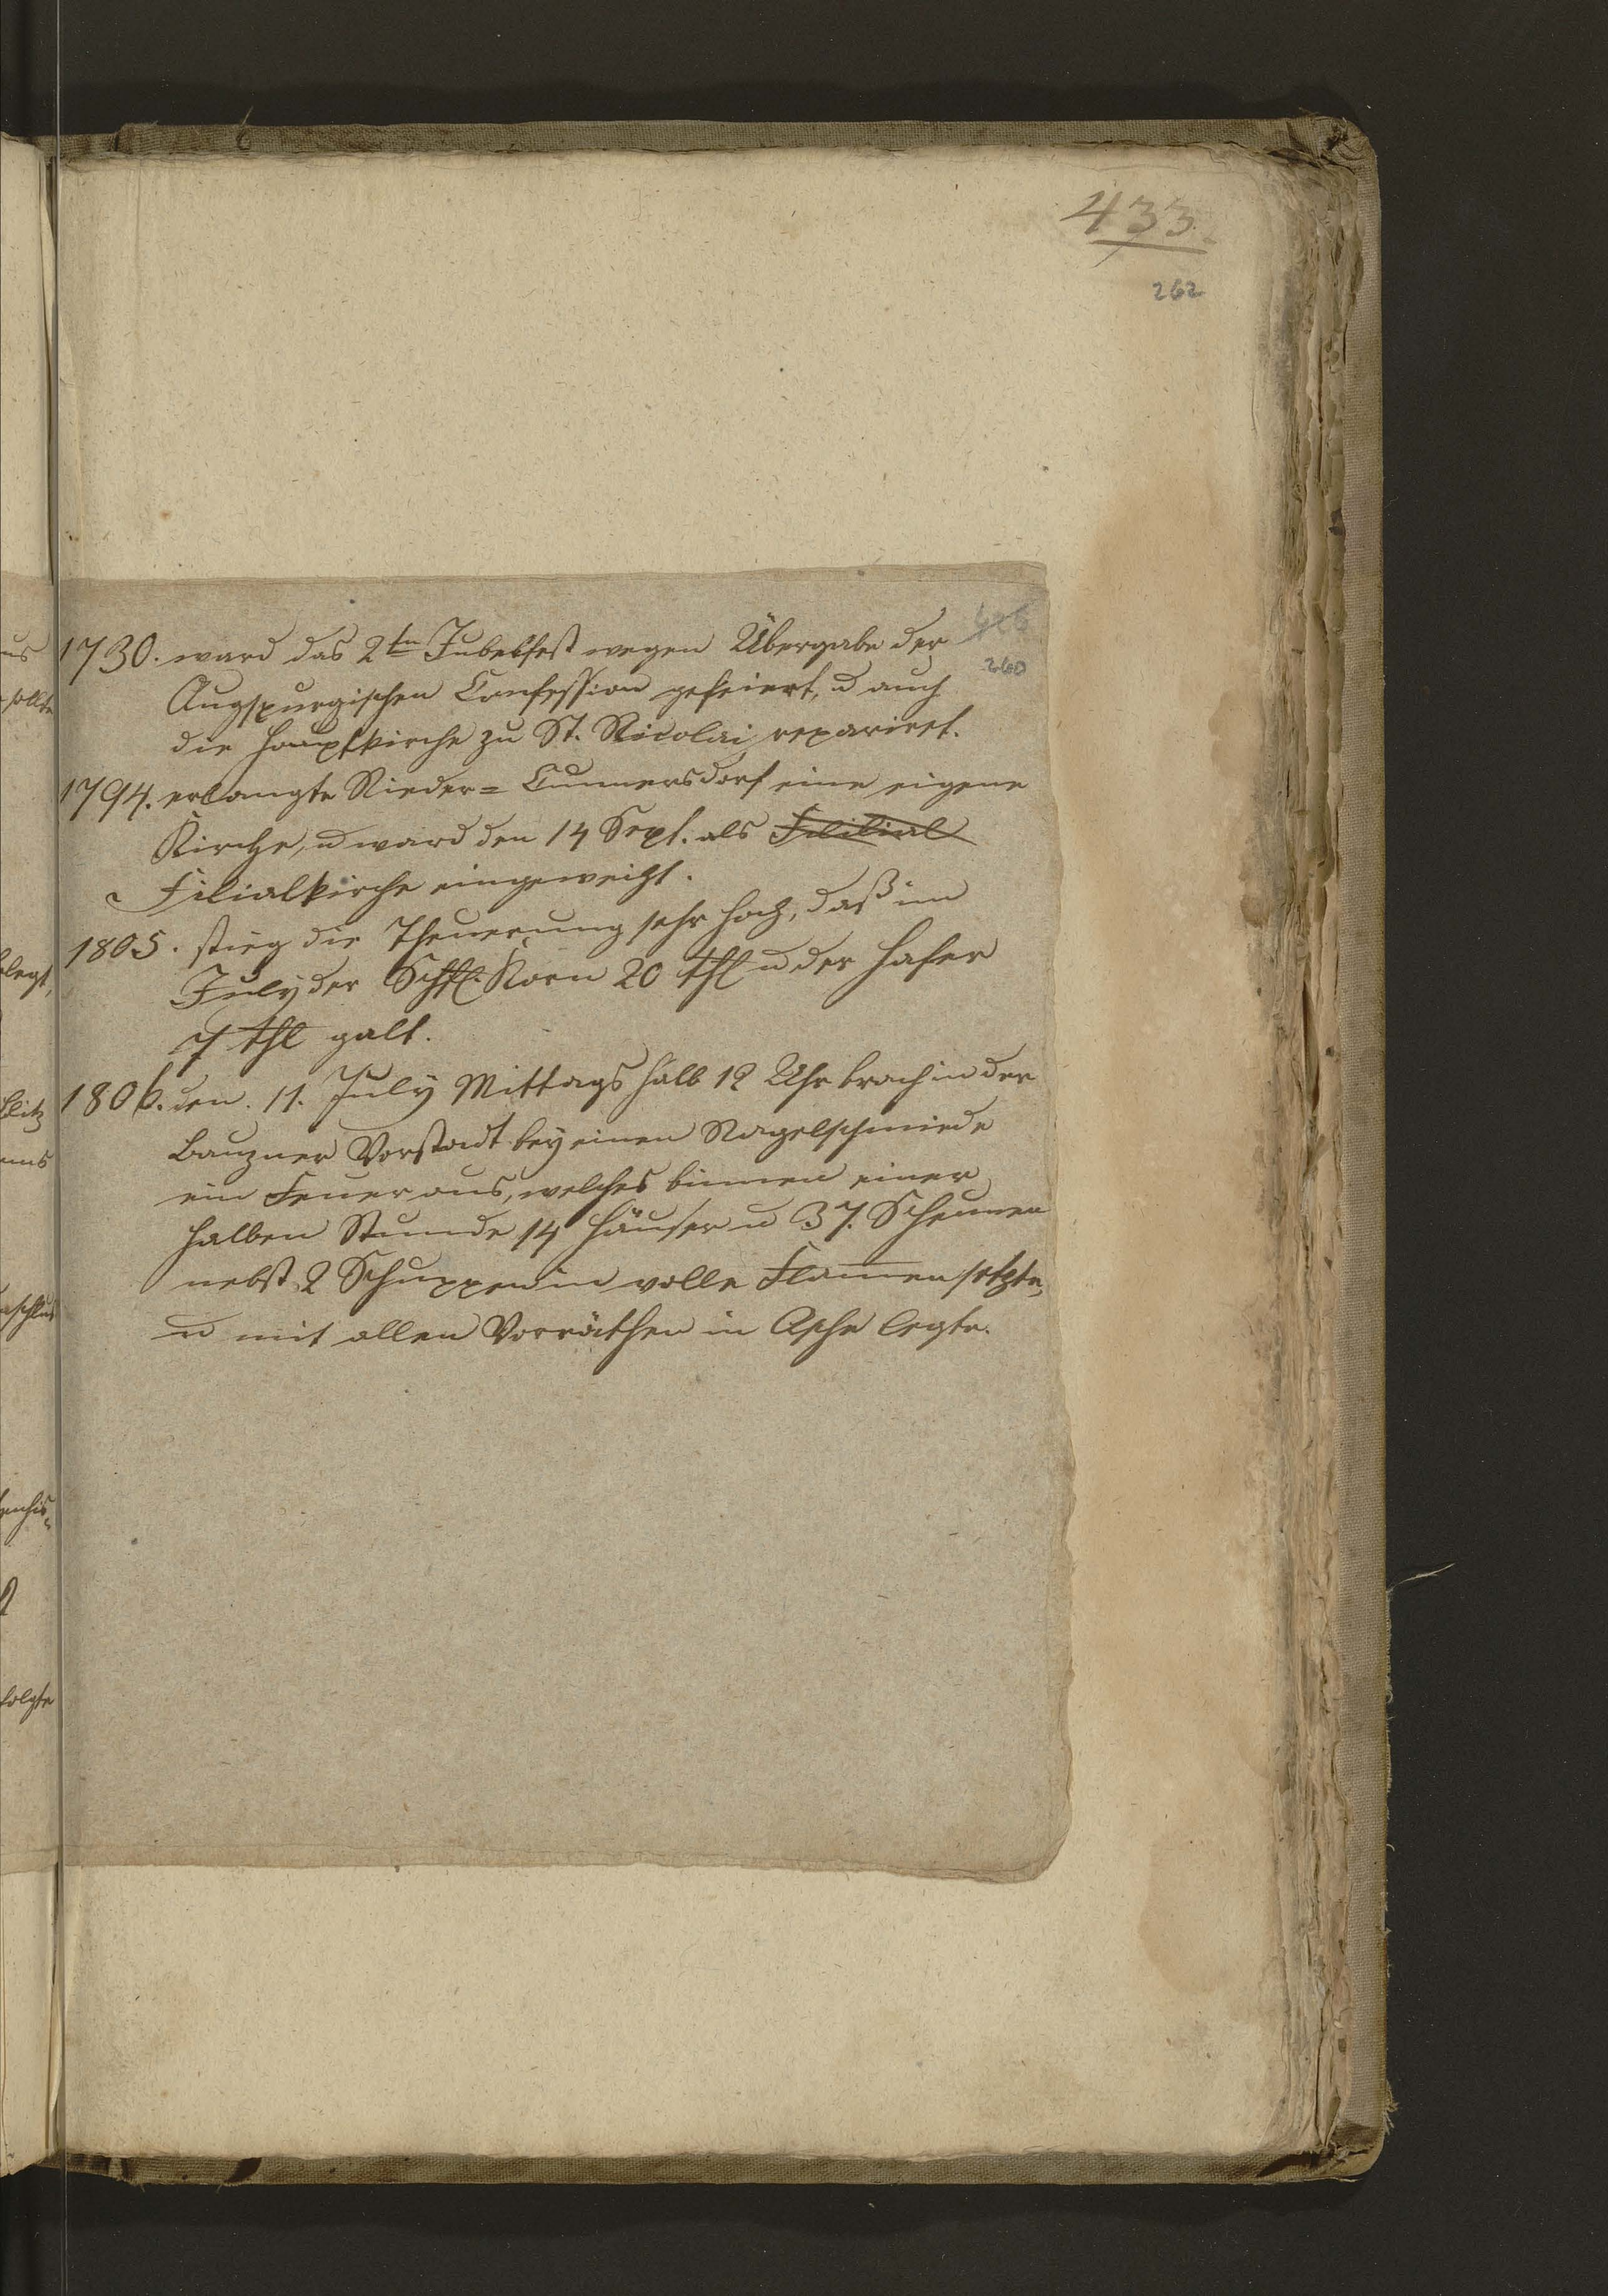 433.
262
260
1730. ward das 2te Jubelfest wegen Übergabe der
Augspurgischen Confession gefeiert, u auch
die Hauptkirche zu St. Nicolai reparirt.
1794. erlangte Nieder= Cunnersdorf eine eigene
Kirche, u ward den 14 Sept. als Filibial
Filialkirche eingeweiht.
1805. stieg die Theuerung sehr hoch, daß im
July der Schfl. Korn 20 thl u der Hafer
7 thl galt.
1806. den. 11. July Mittags halb 12 Uhr brach in der
Bauzner Vorstadt bey einen Nagelschmiede
ein Feuer aus, welches binnen einer
halben Stunde 14 Häuser u 37. Scheunen
nebst 2 Schuppen in volle Flamen setzte,
u mit allen Vorräthen in Asche legte.
us
sollte
legt,
folgte